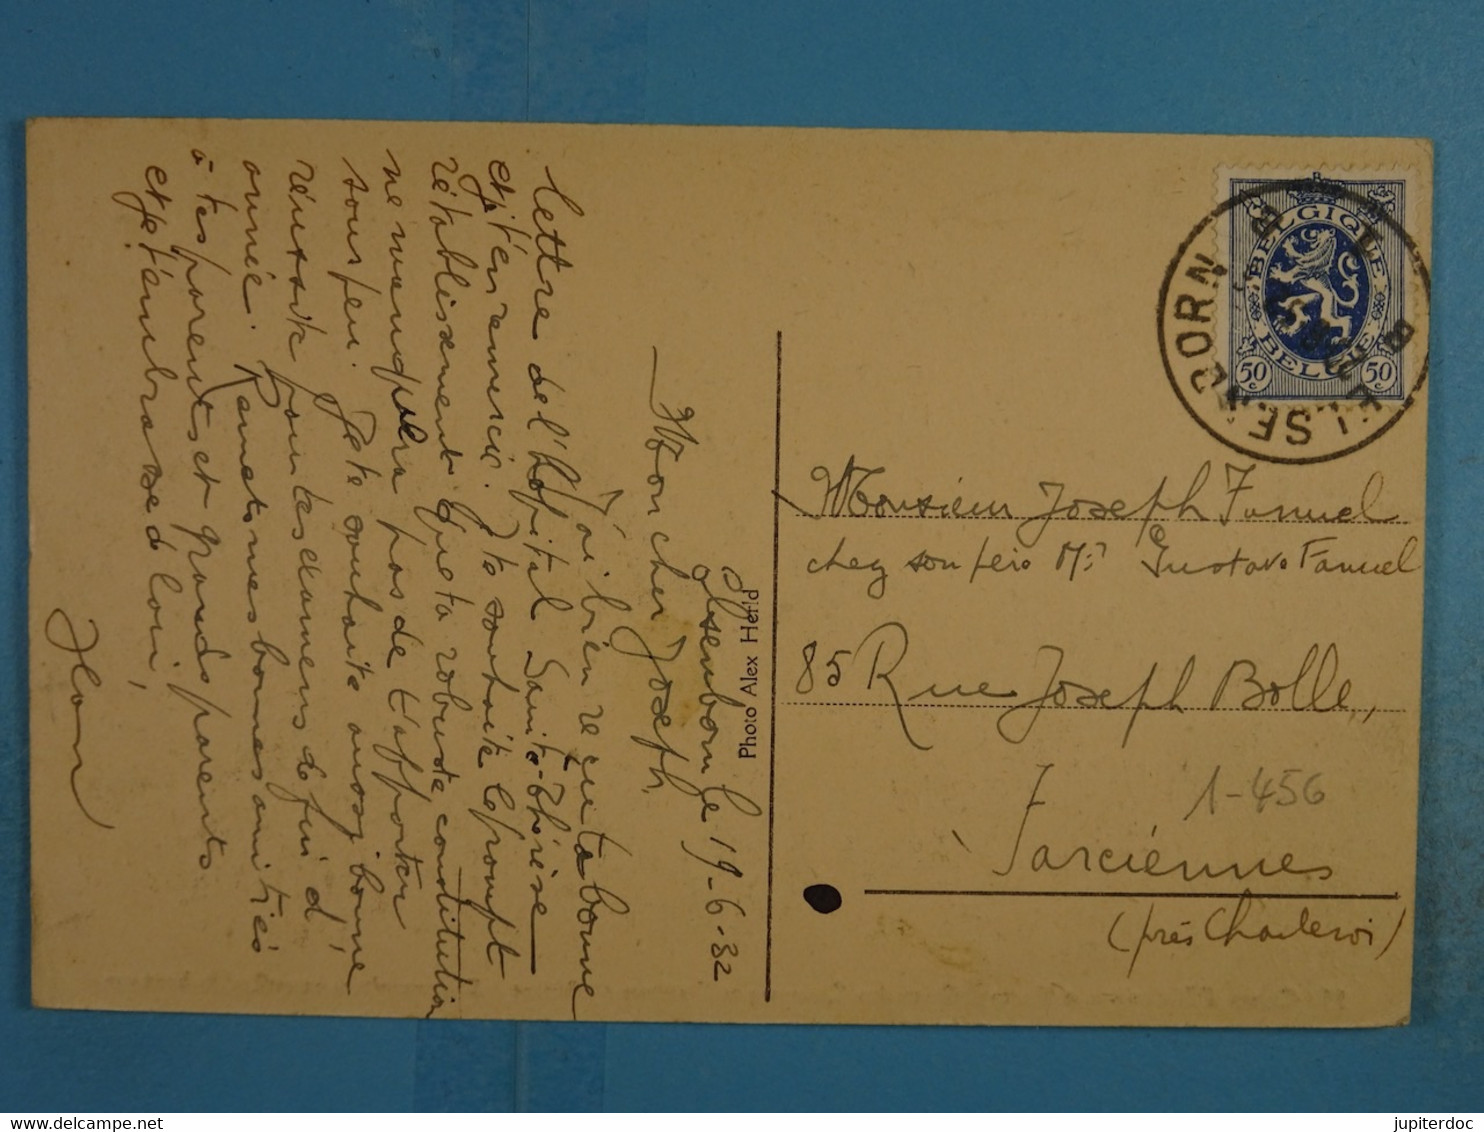 Elsenborn le 19-6-32
Mon cher Joseph,
J'ai bien reçu ta bonne
lettre de l'hôpital Sainte-Thérèse
et je t'en remercie. Je te souhaite le prompt
rétablissement que ta robuste constitution
ne manquera pas de t'apporter
sous peu. Je te souhaite aussi bonne
réussite pour tes examens de fin d'
année. Remets mes bonnes amitiés
à tes parents et grands parents
et je t'embrasse de loin,
Photo Alex Herld
BELGIQUE
BELGIE
50 c
50 c
ELSENBORN
Monsieur Joseph Fanuel
chez son père Mr Gustave Fanuel
85 Rue Joseph Bolle,
1-456
à Farciennes
(près Charleroi)
jupiterdoc